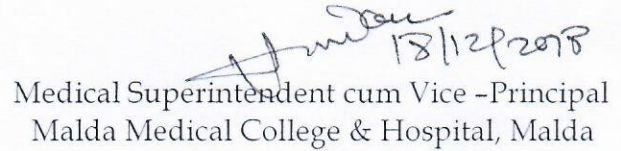 18/12/2018
Medical Superintendent cum Vice –Principal
Malda Medical College & Hospital, Malda